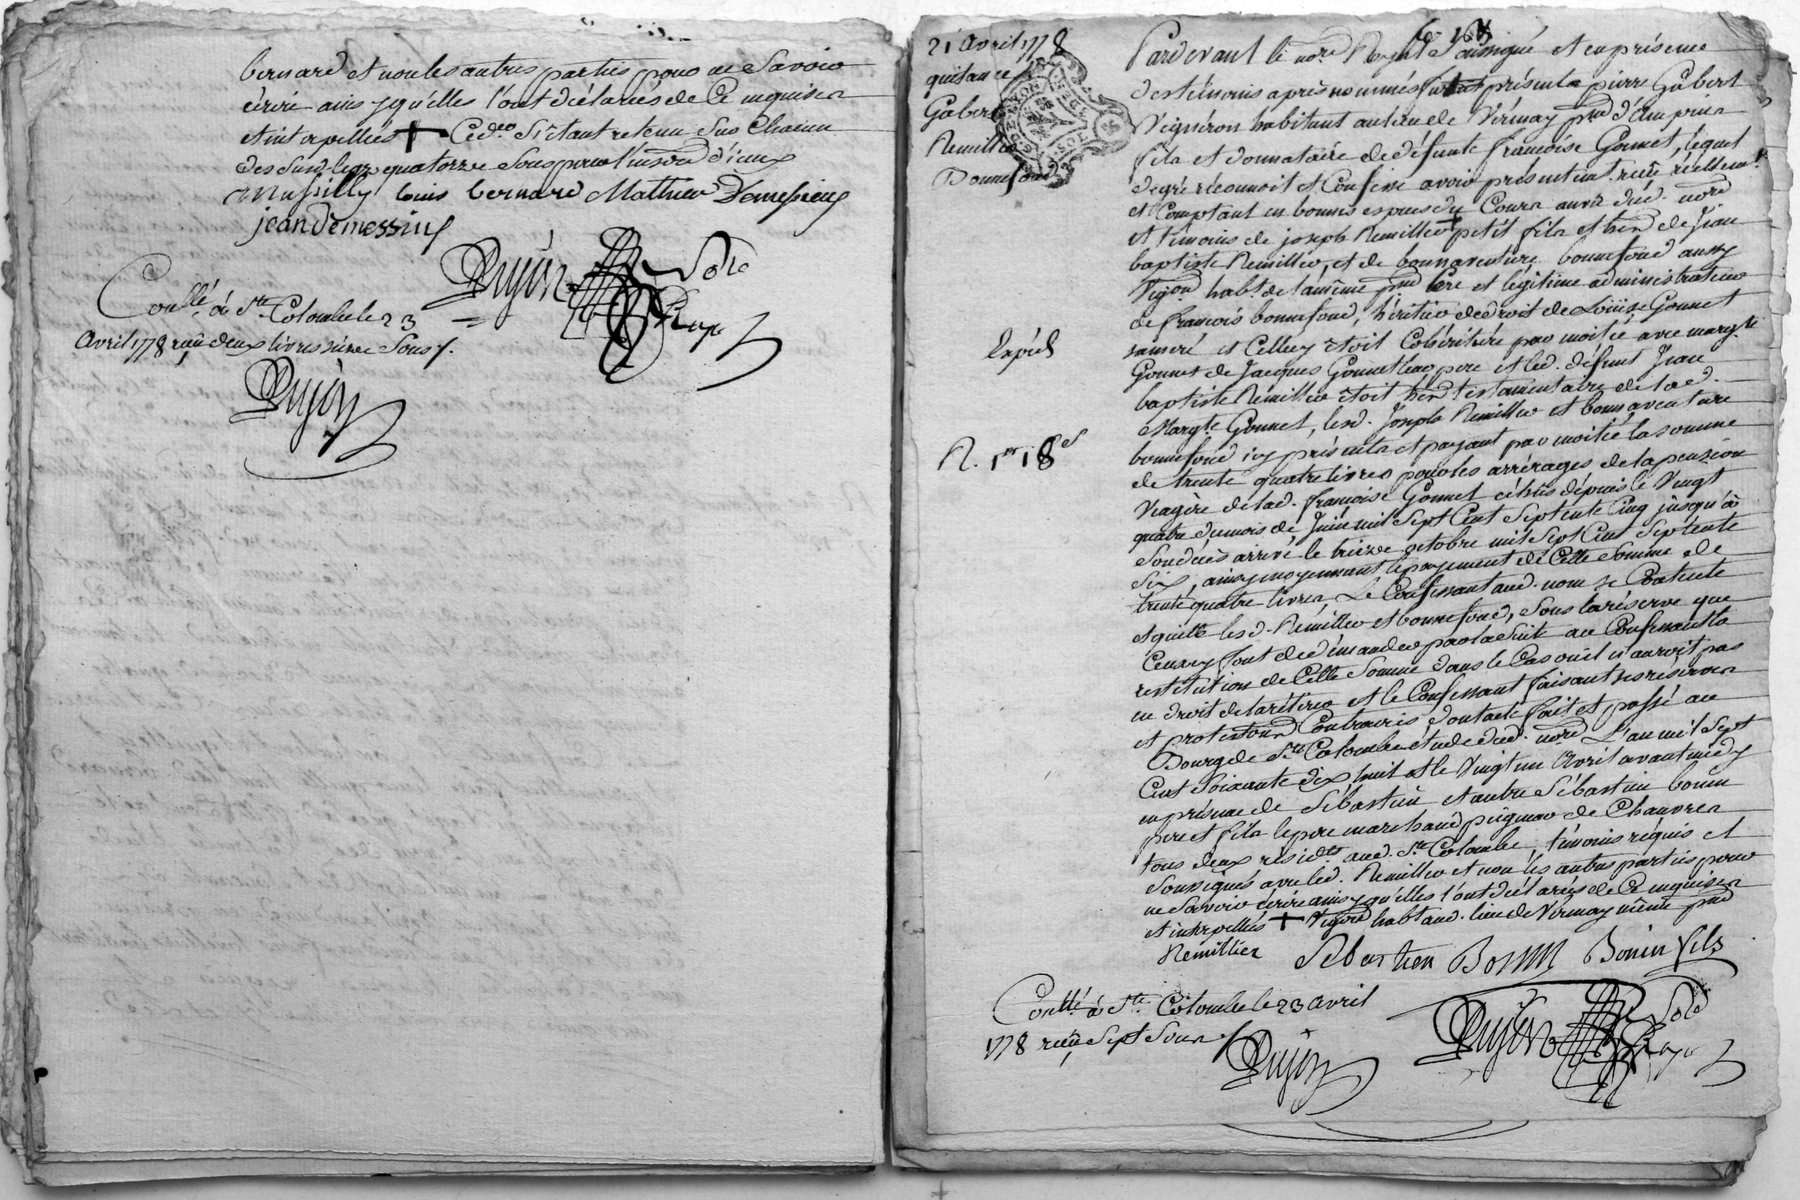 bernard et non les autres parties pour ne Savoir
écrire ainsy qu'elles l'ont déclarés de ce requises
et interpellés + led. Sr. étant retenu Sur Chacun
des Susd. legs quatorze Sous pour l'insôn d'iceux
Mussilly louis bernard Mathieu Demessieux
jean demessieux
Dujon Nore
Royal
Conllé à Ste Colombe le 23
Avril 1778 reçu deux livres seize Sous /.
Dujon
168
21 Avril 1778
quitance
Gabert
Remillier
Bonnefond
Expéd
R. 1er 18s
Pardevant le nore Royal Soussigné et en présence
des témoins après nommés fut présent pierre Gabert
Vigneron habitant au lieu de Vérinay psse d'Ampuis
fils et donnataire de défunte françoise Gonnet, lequel
de gré reconnoit et Confesse avoir présentement reçu réellemt.
et Comptant en bonnes espèces du Cours aux vüe dud. nore
et témoins de joseph Remillier + petit fils et herd de Jean
baptiste Remillier, et de bonnaventure bonnefond aussy
Vigon habt. de la même psse père et légitime administrateur
de françois bonnefond, héritier de droit de Loüise Gonnet
sa mère et Celluy étoit Cohéritière par moitié avec margte
Gonnet de Jacques Gonnet leur père et led. défunt Jean
baptiste Remillier étoit herd testamentaire de lad.
Margte Gonnet, lesd. Joseph Remillier et bonnaventure
bonnefond icy présents et payant par moitié la somme
de trente quatre livres pour les arrérages de la pension
Viagère de lad. françoise Gonnet échus dépuis le Vingt
quatre du mois de Juin mil Sept Cent Septente Cinq jusqu'à
Son décès arrivé le treize octobre mil Sept Cent Septente
Six, ainsy moyennant le payement de Cette Somme de
trente quatre livres, Le Confessant aud. nom se Contente
et quitte lesd. Remillier et bonnefond, Sous la réserve que
Ceux cy font de démander par la Suite au Confessant la
restitution de Cette Somme dans le Cas où il n'auroit pas
eu droit de la rétirer et le Confessant faisant ses réserves
et protestons Contraires dont acte fait et passé au
Bourg de Ste Colombe étude dud. nore L'an mil Sept
Cent Soixante dix huit et le Vingt un Avril avant midy
en présence de Sébastien et autre Sébastien bonin
père et fils le père marchand peigneur de Chanvres
tous deux résidts. aud. Ste Colombe, témoins réquis et
Soussignés avec led. Remillier et non les autres parties pour
ne Savoir écrire ainsy qu'elles l'ont déclarés de Ce requises
et interpellés + Vigon habt aud. lieu de Vérinay même psse
Remillier Sebastien Bonin Bonin fils
Conllé à Ste Colombe le 23 Avril
1778 reçu Sept Sous /.
Dujon
Dujon Nore
Royal